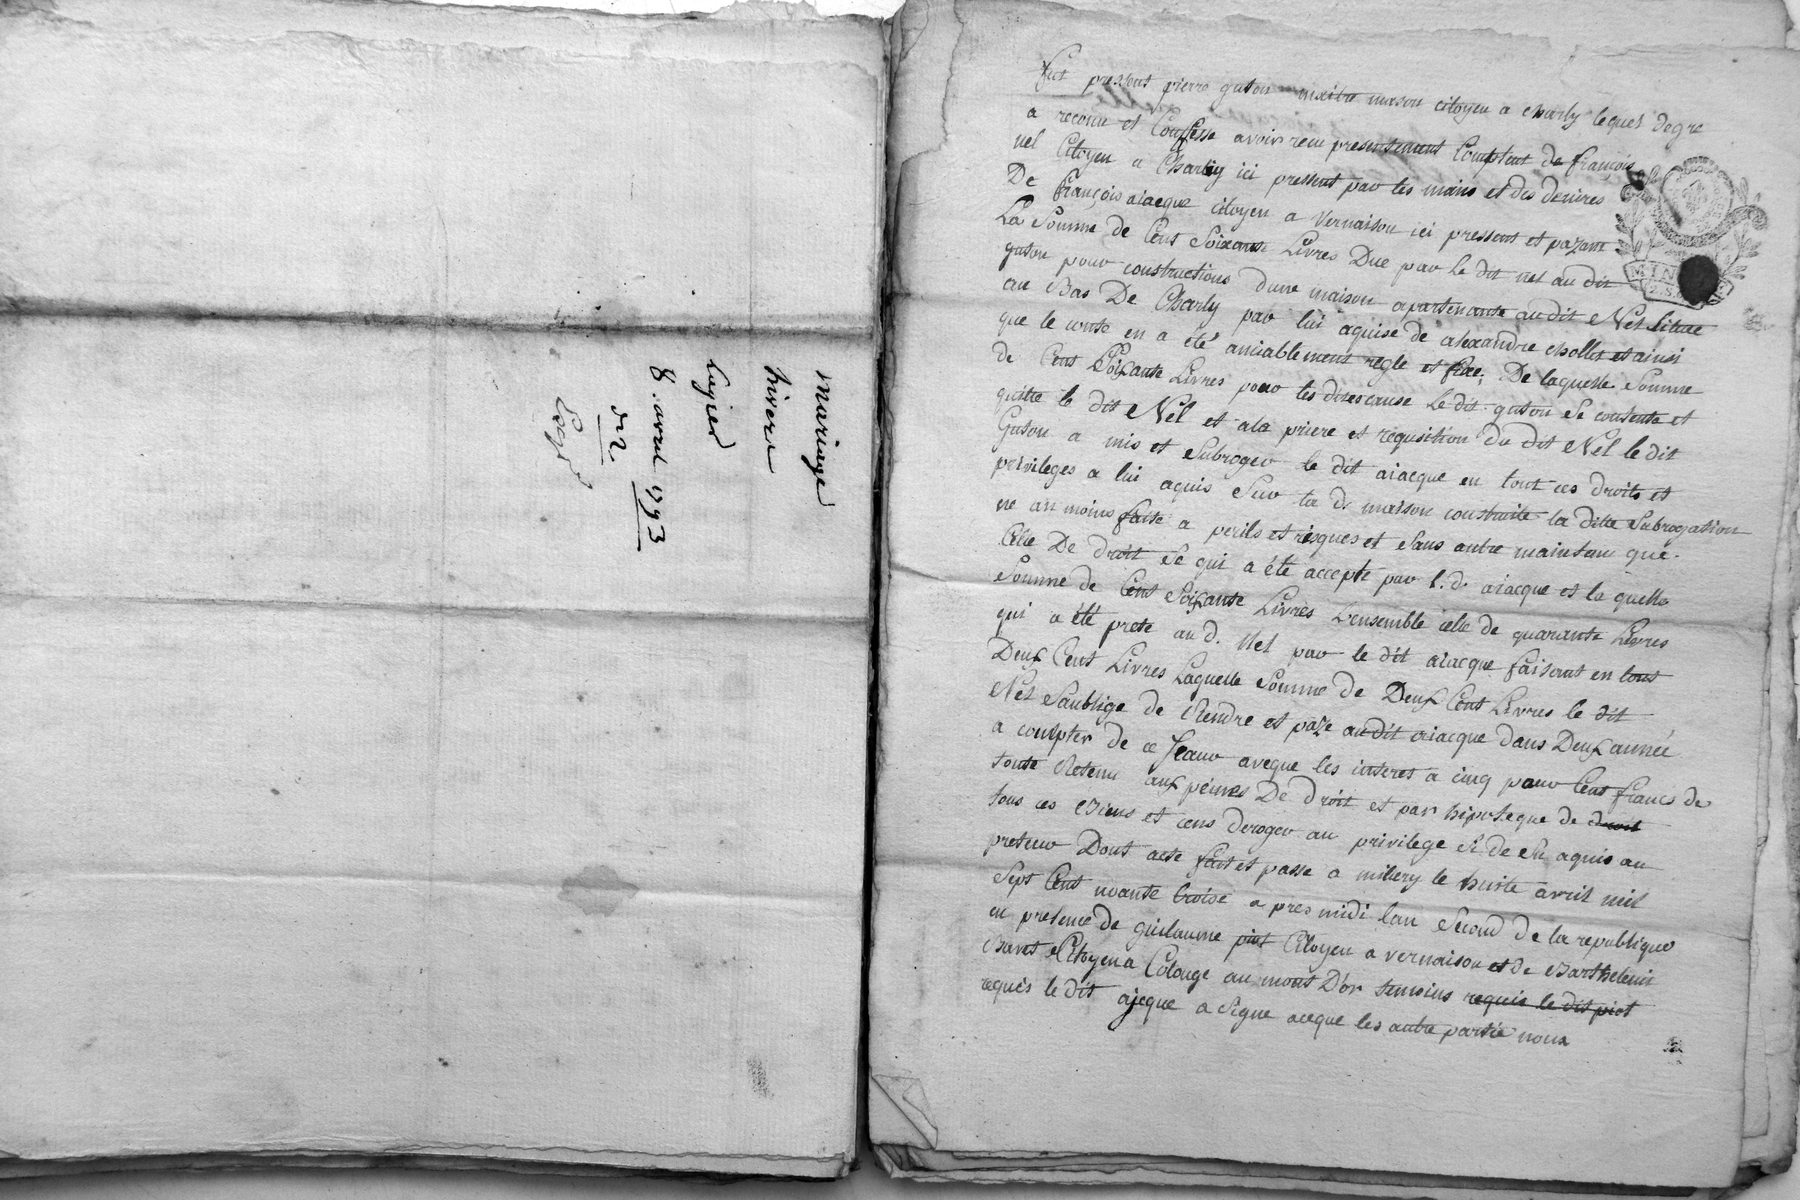 mariage
hivern
Lagier
8. avril 1793
Fut present pierre guton maitre mason citoyen a charly lequel degre
a reconu et Confesse avoir reçu presentement Comptent de francois
nel Citoyen a Charly ici pressent par les mains et des deniers
De François aiacque citoyen a Vernaison ici pressent et payant
La Somme de Cent Soixante Livres Due par le dit nel au dit
guton pour constructions dune maison apartenante audit Nel situee
au Bas De Charly par lui aquise de alexandre chollet et ainsi
que le conte en a été amiablement regle et fixe, De laquelle Somme
de Cent Soixante Livres pour les dites cause Le dit guton se contente et
quitte le dit Nel et ala priere et requsition du dit Nel le dit
Guton a mis et Subroger le dit aiacque en tout ces droits et
privileges a lui aquis Sur la d. maison construite la ditte Subrogation
ne an moins faite a perils et risques et Sans autre maintenu que
Celle De droit Ce qui a été accepté par l. d. aiacque et la quelle
Somme de Cent Soixante Livres Densemble celle de quarante Livres
qui a été prete au d. Nel par le dit aiacque faisant en tout
Deux Cent Livres Laquelle Somme de Deux Cent Livres le dit
Nel Saublige de Rendre et paye audit aiacque dans Deux année
a coulpter de ce Jeauv aveque les interes a cinq pour Cent francs de
toute Retenu aux peines De droit et par hipoteque de droit
tous ces Biens et cens deroger au privilege Si de su aquis au
preteur Dont acte fait et passe a milery le huite avril mil
Sept Cent noante troise a pres midi lan Second de la republique
en presence de guilaume piot Citoyen a vernaison et de Barthelemi
Citoyen a Colonge au mont D'or temoins requis le dit piot
requis le dit ajeque a Signe aveque les autre partie nous